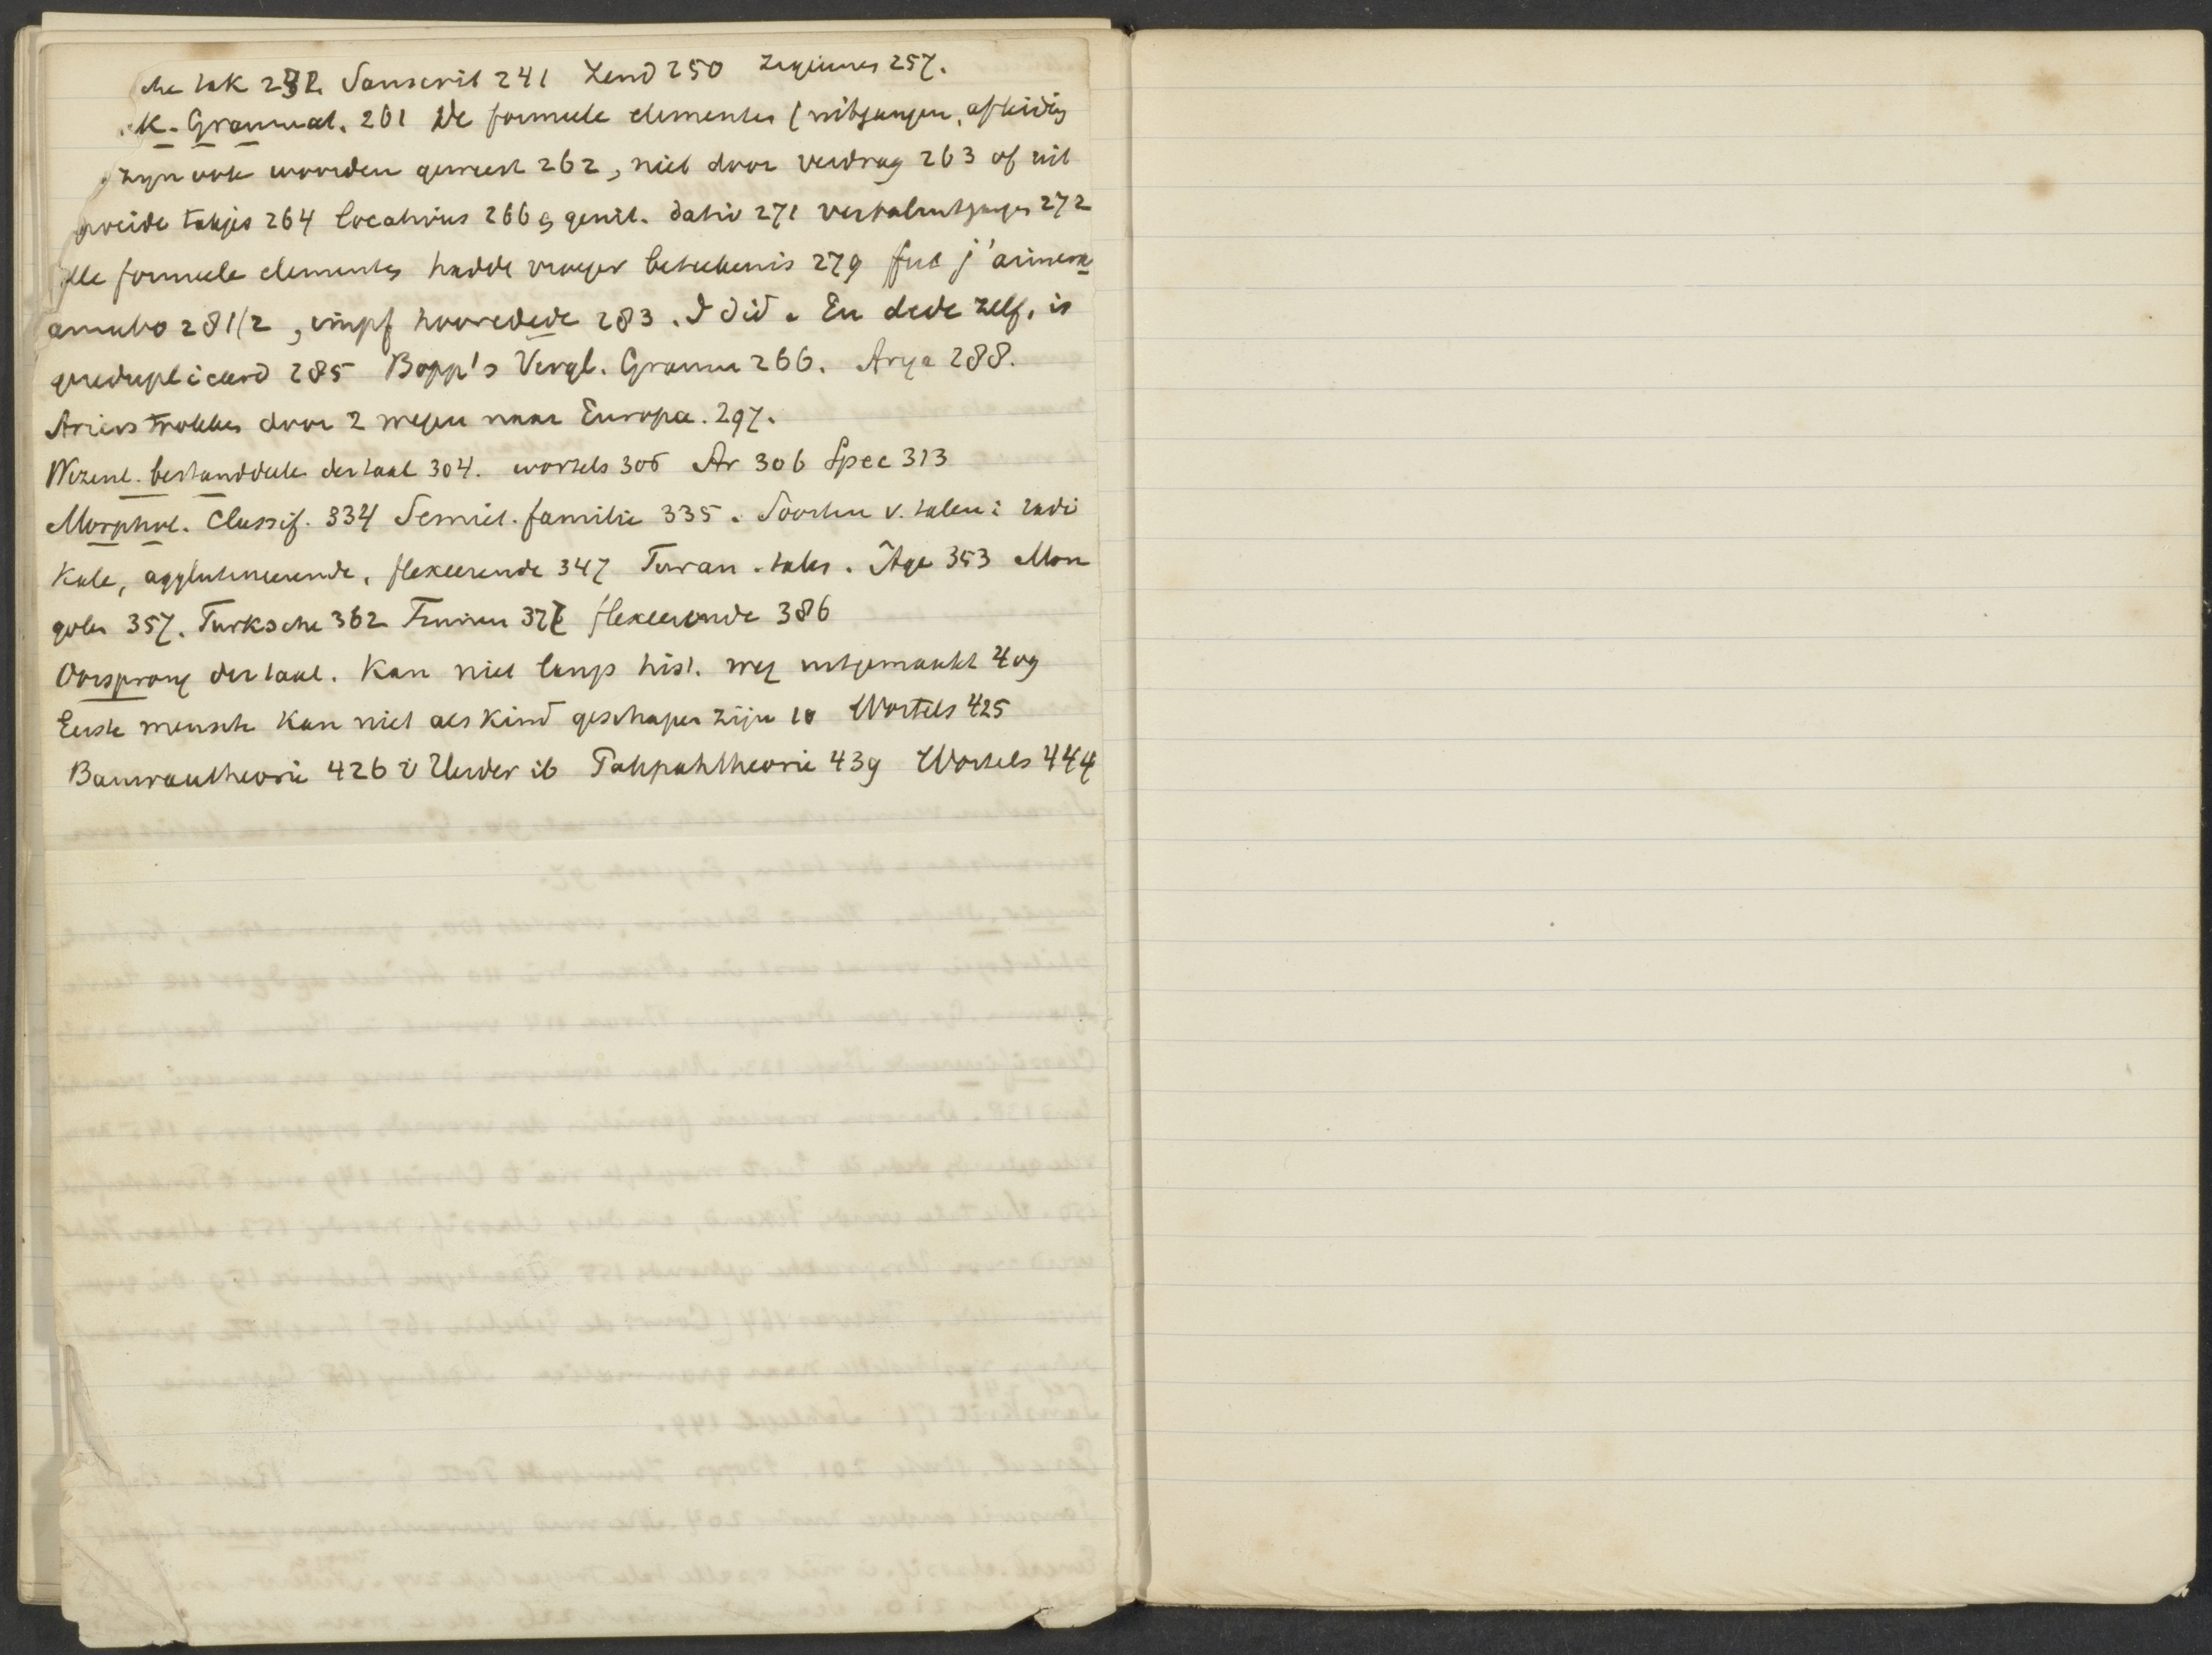 che tak 232. Sanscrit 241 Zend 250 Zigeuners 257.
k. Grammat. 261 De formeele elementen (uitgangen, afleiding
zijn ook woorden geweest 262, niet door verdrag 263 of uit
takjes 264 locativus 266 genit. datiev 271 verbaaluitgangen 272
Alle formeele elementen hadde vroeger beteekenis 279 fut j'aimerai
amabo 281/2, impf hoorde 283. I did. En dede zelf, is
gereduplicceerd 285 Bopp's Vergl. Gramm 266. Arya 288.
Ariers trokken door 2 wegen naar Europa. 297.
Wezenl. bestanddeelen der taal 304. wortels 306 Ar 306 Spec 313
Morphol. Classif. 334 Semiet. familie 335. Soorten v. talen: radi
kale, agglutineerende, flexeerende 347 Turan. talen. Age 353 Mon
golen 357. Turksche 362 Finnen 377 flexeerende 386
Oorsprong der taal. Kan niet langs hist. weg uitgemaakt 409
Eerste mensch kan niet als kind geschapen zijn 10 Wortels 425
Bauwautheorie 426 v Herder ib Pahpahtheorie 439 Wortels 444